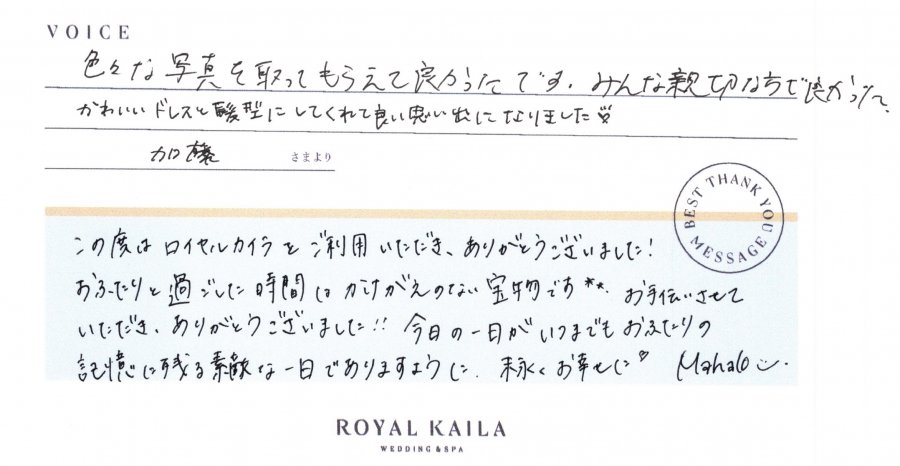 VOICE
色々な写真を取ってもらえて良かったです。みんな親切な方で良かった。
かわいいドレスと髪型にしてくれて良い思い出になりました♡
加藤 さまより
BEST THANK YOU MESSAGE
この度はロイヤルカイラをご利用いただき、ありがとうございました!
おふたりと過ごした時間はかけがえのない宝物です** お手伝いさせて
いただき、ありがとうございました!! 今日の一日がいつまでもおふたりの
記憶に残る素敵な一日でありますように。末永くお幸せに♡ Mahalo
ROYAL KAILA
WEDDING & SPA